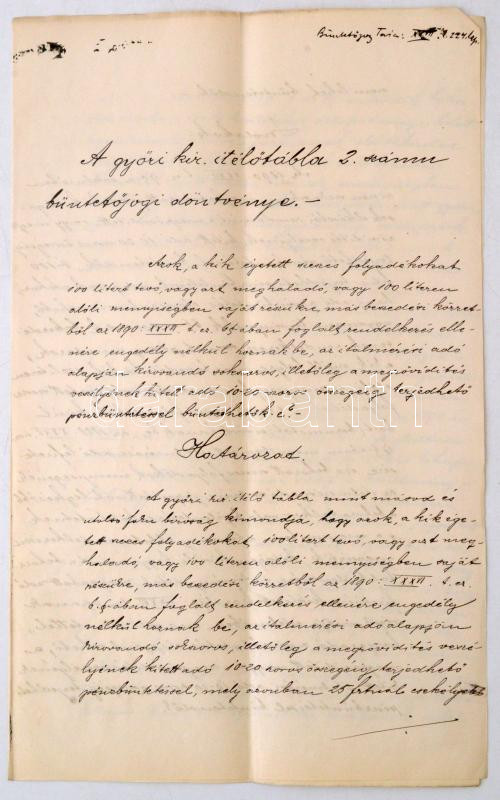 Büntetőjog Tára: XXVII k. 224 lap.
A győri kir. itélőtábla 2. számu
büntetőjogi döntvénye. –
Azok, a kik égetett szeszes folyadékokat
100 litert tevő, vagy azt meghaladó, vagy 100 literen
alóli mennyiségben saját részükre, más beszedési körzet-
ből az 1890: XXXVI t. cz. 6 §-ában foglalt rendelkezés elle-
nére engedély nélkül hoznak be, az italmérési adó
alapján kirovandó sokszoros, illetőleg a megrövidités
veszélyének kitett adó 10-20 szoros összegéig terjedhető
pénzbüntetéssel büntethetők-e?
darabanth
Határozat.
A győri kir. itélő tábla mint másod és
utolsó foku biróság kimondja, hogy azok, a kik ége-
tett szeszes folyadékokat, 100 litert tevő, vagy azt meg-
haladó, vagy 100 literen alóli mennyiségben saját
részükre, más beszedési körzetből az 1890: XXXVI t. cz.
6. §-ában foglalt rendelkezés ellenére engedély
nélkül hoznak be, az italmérési adó alapján
kirovandó sokszoros, illetőleg a megrövidités veszé-
lyének kitett adó 10-20 szoros összegéig terjedhető
pénzbüntetéssel, mely azonban 25 frtnál csekélyebb